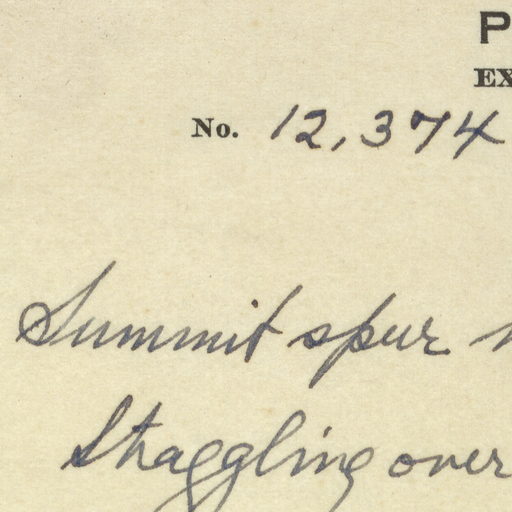 P
EX
No. 12,374
Summit spur
Straggling over